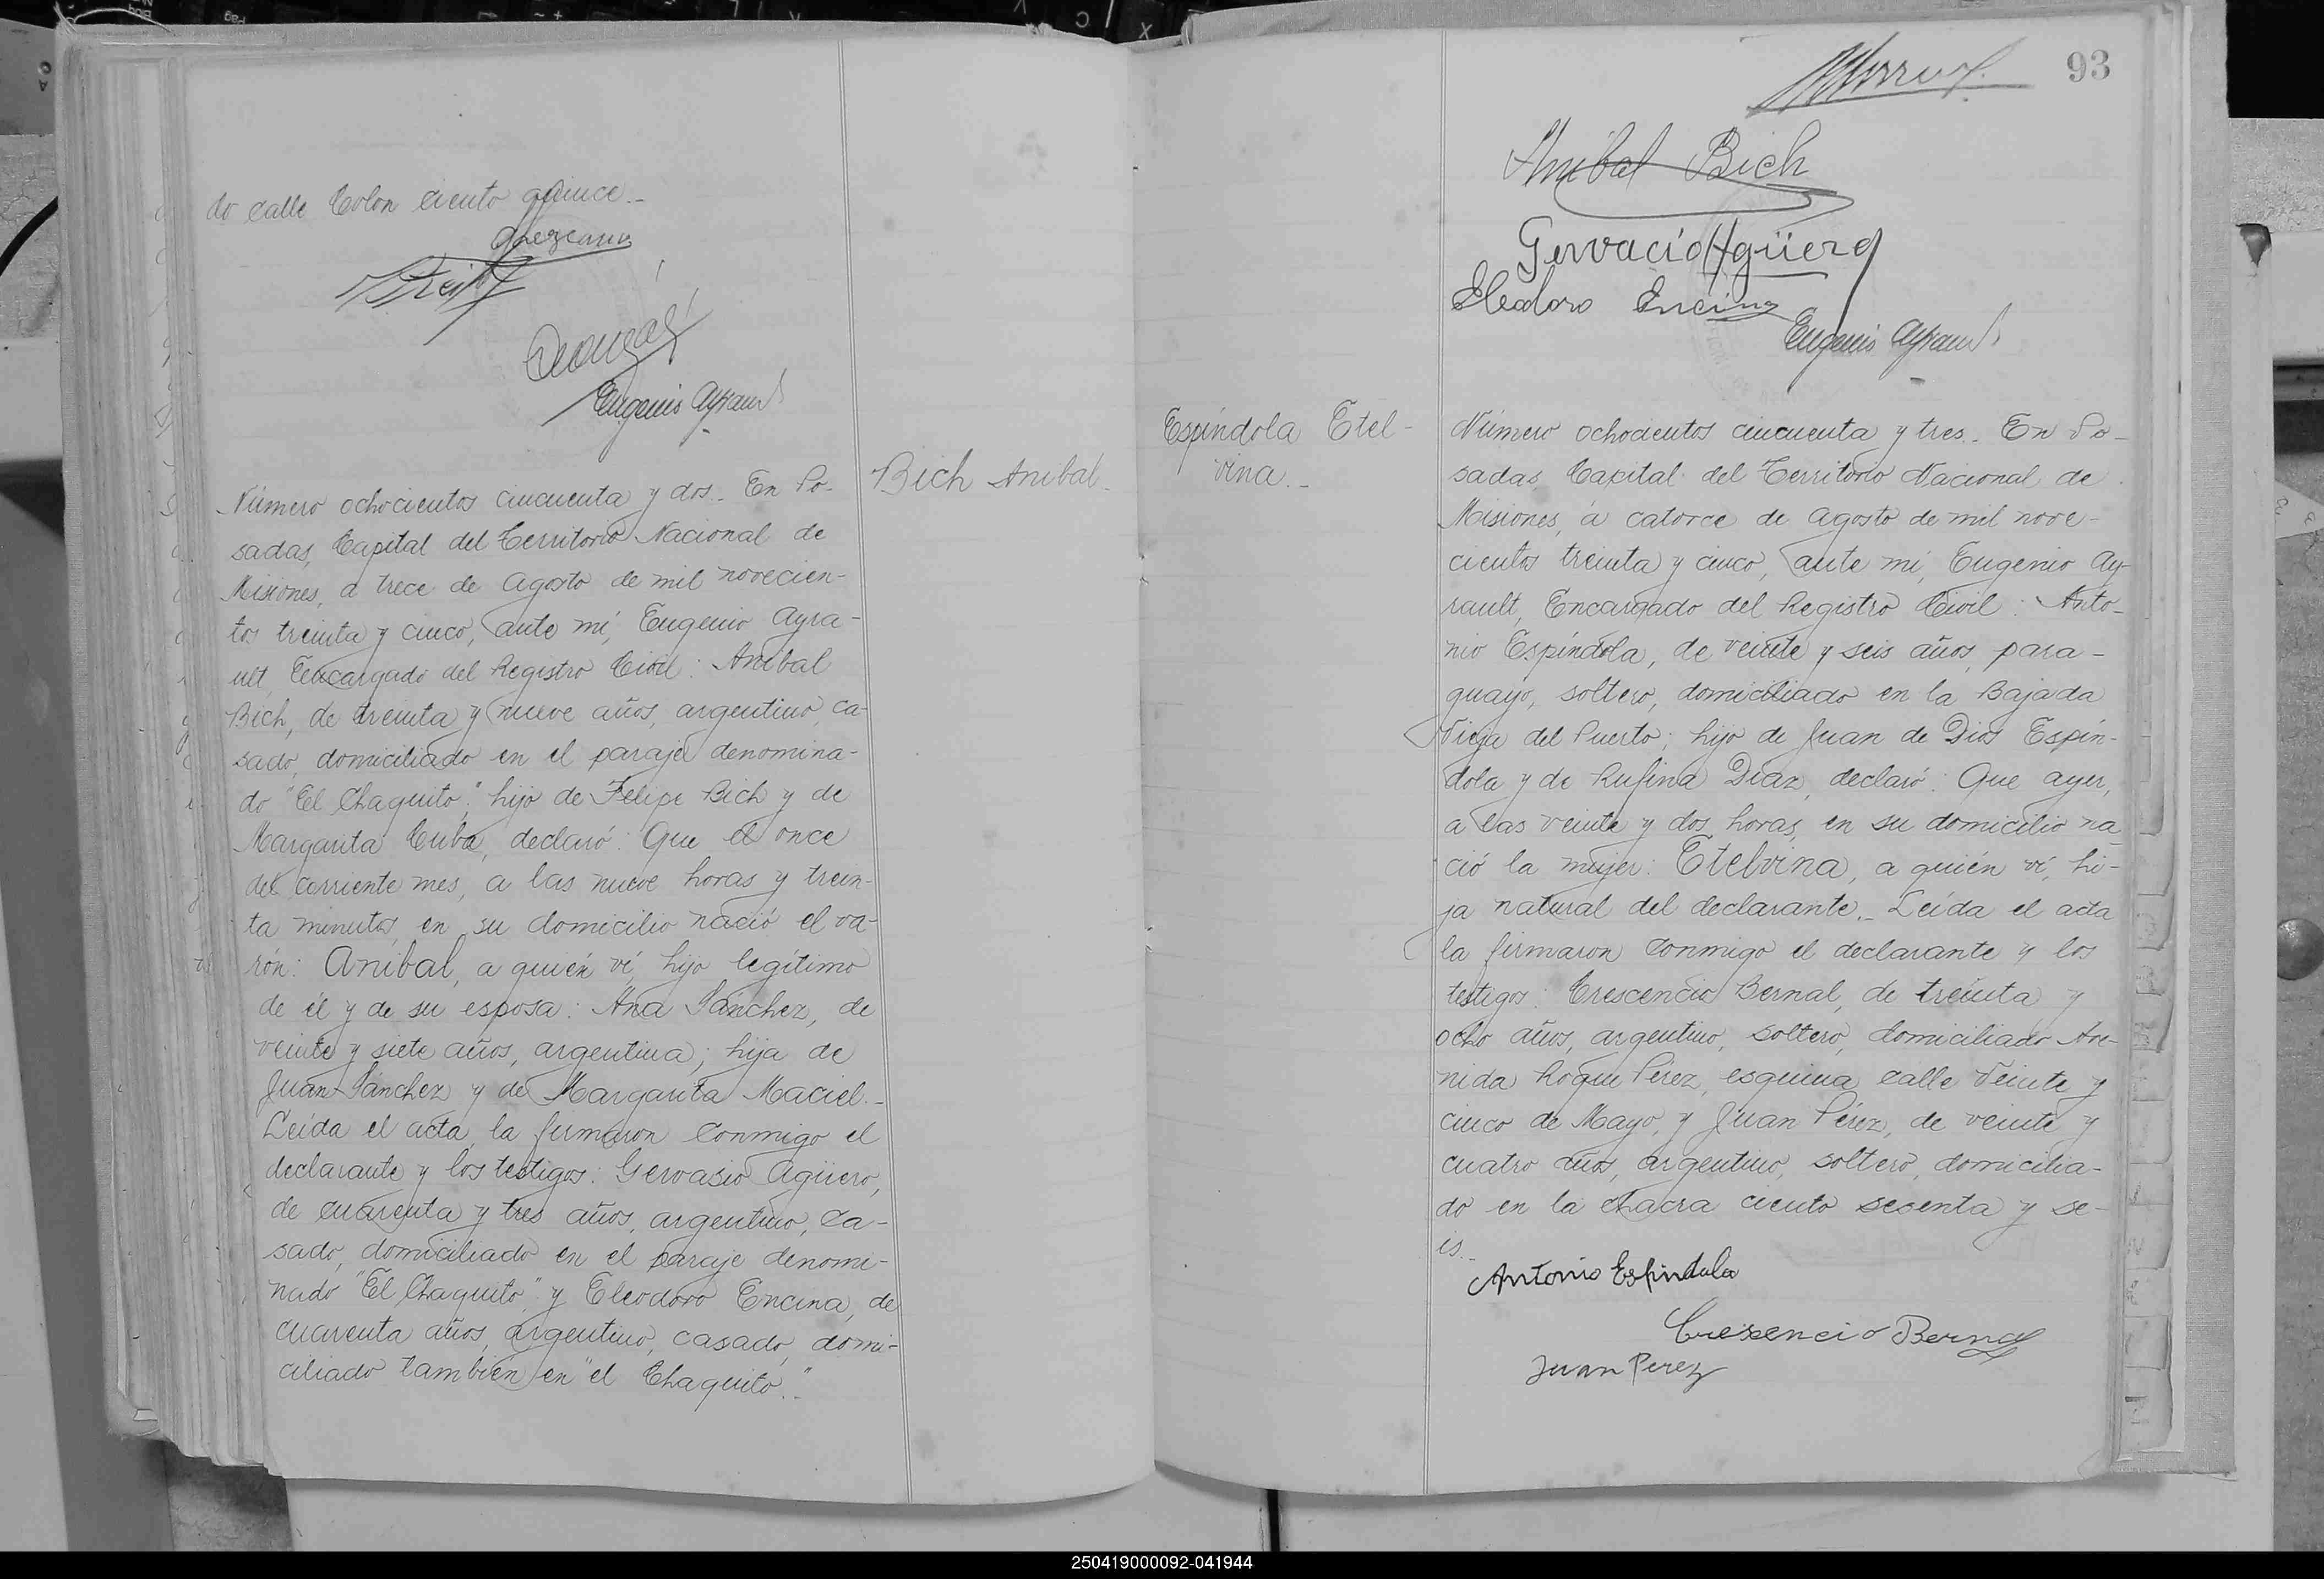 do calle Colon ciento quince._
Eugenio Ayrault
Bich Anibal._
Número ochocientos cincuenta y dos._ En Po-
sadas, Capital del Territorio Nacional de
Misiones, a trece de Agosto de mil novecien-
tos treinta y cinco, ante mí, Eugenio Ayra-
ult, Encargado del Registro Civil: Anibal
Bich, de treinta y nueve años, argentino, ca-
sado, domiciliado en el paraje denomina-
do "El Chaquito", hijo de Felipe Bich y de
Margarita Cuba, declaró: Que el once
del corriente mes, a las nueve horas y trein-
ta minutos, en su domicilio nació el va-
rón: Anibal, a quién ví, hijo legítimo
de él y de su esposa: Ana Sánchez, de
veinte y siete años, argentina; hija de
Juan Sánchez y de Margarita Maciel._
Leída el acta, la firmaron conmigo el
declarante y los testigos: Gervasio Agüero,
de cuarenta y tres años, argentino, ca-
sado, domiciliado en el paraje denomi-
nado "El Chaquito" y Eleodoro Encina, de
cuarenta años, argentino, casado, domi-
ciliado también en "el Chaquito."_
93
Anibal Bich
Gervacio Agüero
Eleodoro Encina
Eugenio Ayrault
Espíndola Etel-
vina._
Número ochocientos cincuenta y tres._ En Po-
sadas, Capital del Territorio Nacional de
Misiones, á catorce de Agosto de mil nove-
cientos treinta y cinco, ante mí, Eugenio Ay-
rault, Encargado del Registro Civil: Anto-
nio Espíndola, de veinte y seis años, para-
guayo, soltero, domiciliado en la Bajada
Vieja del Puerto; hijo de Juan de Dios Espín-
dola y de Rufina Díaz, declaró: Que ayer,
a las veinte y dos horas, en su domicilio na
ció la mujer: Etelvina, a quién ví, hi-
ja natural del declarante._ Leída el acta
la firmaron conmigo el declarante y los
testigos: Crescencio Bernal, de treinta y
ocho años, argentino, soltero, domiciliado Ave-
nida Roque Pérez, esquina calle Veinte y
cinco de Mayo, y Juan Pérez, de veinte y
cuatro años, argentino, soltero, domicilia-
do en la chacra ciento sesenta y se-
is._
Antonio Espindola
Cresencio Bernal
Juan Perez
250419000092-041944